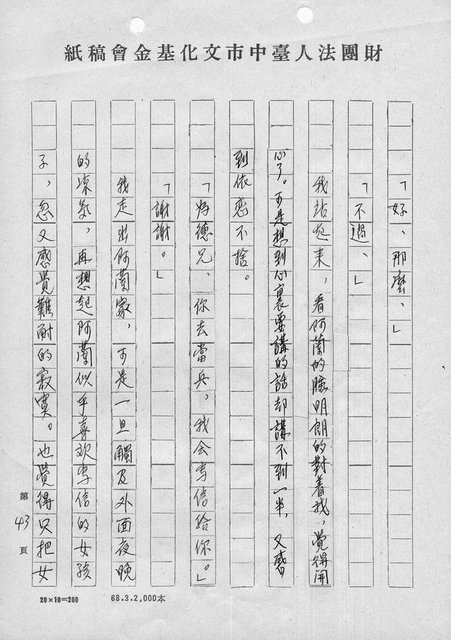 財團法人臺中市文化基金會稿紙
「好、那麼、」
「不過、」
我站起來，看阿蘭的臉明朗的對着我，覺得開
心了。可是想到心裏要講的話却講不到一半，又感
到依戀不捨。
「炳德兄、你去當兵，我会寫信給你。」
「謝謝。」
我走出阿蘭家，可是一旦觸及外面夜晚
的凍氣，再想起阿蘭似乎喜歡寫信的女孩
子，忽又感覺難耐的寂寞。也覺得只把女
第43頁
20×10=200
68.3.2,000本